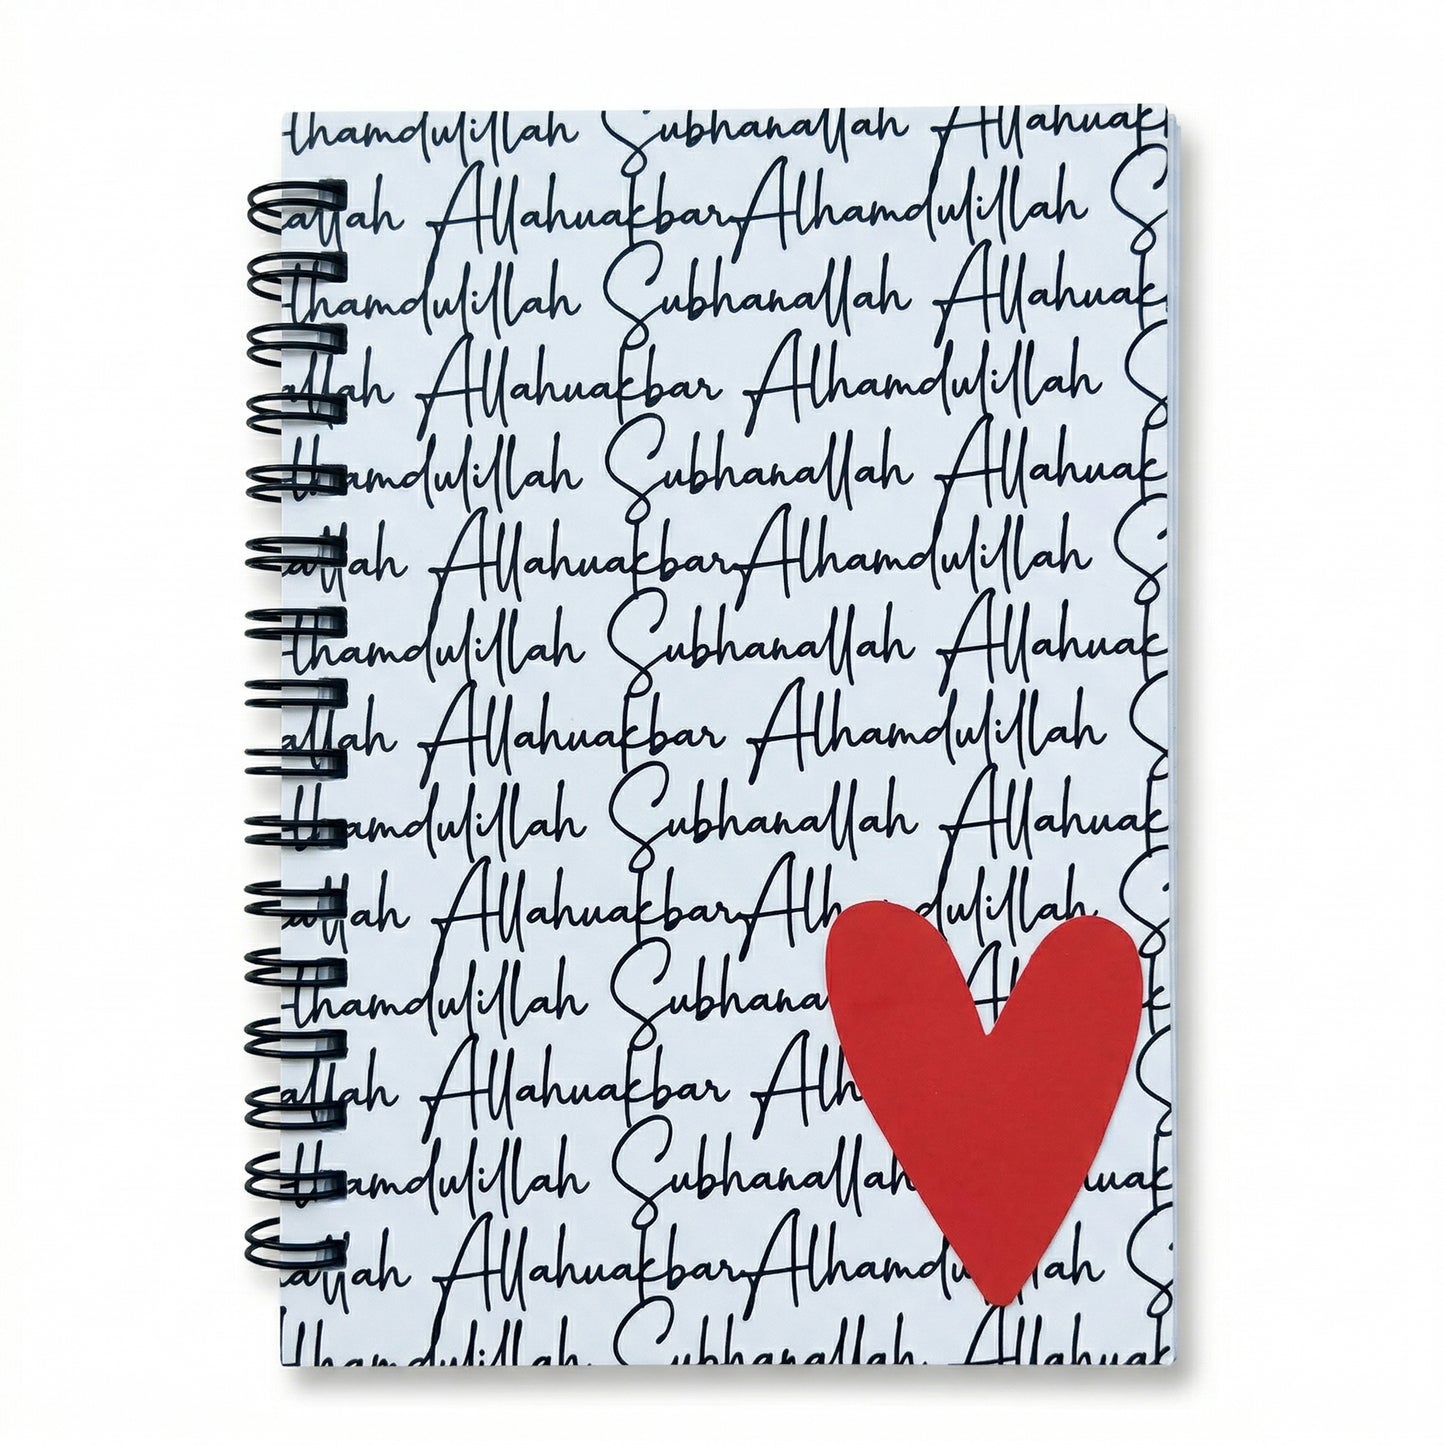 lhamdulillah Subhanallah Allahuak
allah Allahuakbar Alhamdulillah S
lhamdulillah Subhanallah Allahuak
allah Allahuakbar Alhamdulillah S
lhamdulillah Subhanallah Allahuak
allah Allahuakbar Alhamdulillah S
lhamdulillah Subhanallah Allahuak
allah Allahuakbar Alhamdulillah S
lhamdulillah Subhanallah Allahuak
allah Allahuakbar Alh dulillah S
lhamdulillah Subhana Al k
allah Allahuakbar Alh S
lhamdulillah Subhanallah uak
allah Allahuakbar Alhamdu ah S
lhamdulillah Subhanallah Allahuak